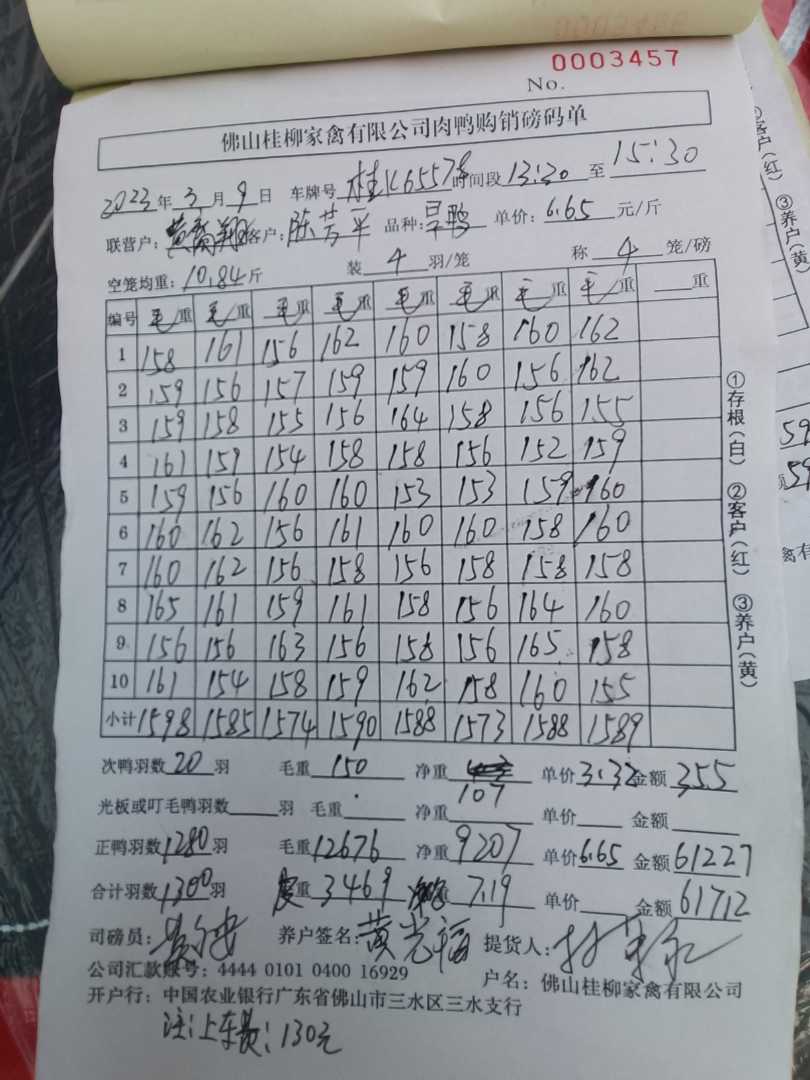 0003457
No.
佛山桂柳家禽有限公司肉鸭购销磅码单
2023年3月9日 车牌号 桂K6557 时间段 13:30 至 15:30
联营户: 客户: 陈芳平 品种: 旱鸭 单价: 6.65 元/斤
空笼均重: 10.84斤 装 4 羽/笼 称 4 笼/磅
编号 毛重 毛重 毛重 毛重 毛重 毛重 毛重 毛重 重
1 158 161 156 162 160 158 160 162
2 159 156 157 159 159 160 156 162
3 159 158 155 156 164 158 156 155
4 161 159 154 158 158 156 152 159
5 159 156 160 160 153 153 159 160
6 160 162 156 161 160 160 158 160
7 160 162 156 158 156 158 158 158
8 165 161 159 161 158 156 164 160
9 156 156 163 156 158 156 165 158
10 161 154 158 159 162 158 160 155
小计 1598 1585 1574 1590 1588 1573 1588 1589
次鸭羽数 20 羽 毛重 150 净重 107 单价 3.32 金额 355
光板或叮毛鸭羽数 羽 毛重 净重 单价 金额
正鸭羽数 1280 羽 毛重 12676 净重 9207 单价 6.65 金额 61227
合计羽数 1300 羽 重 3469 7.19 单价 金额 61712
司磅员: 养户签名: 黄光福 提货人:
公司汇款账号: 4444 0101 0400 16929 户名: 佛山桂柳家禽有限公司
开户行: 中国农业银行广东省佛山市三水区三水支行
注: 上车费: 130元
①存根(白) ②客户(红) ③养户(黄)
客户(红) ③养户(黄)